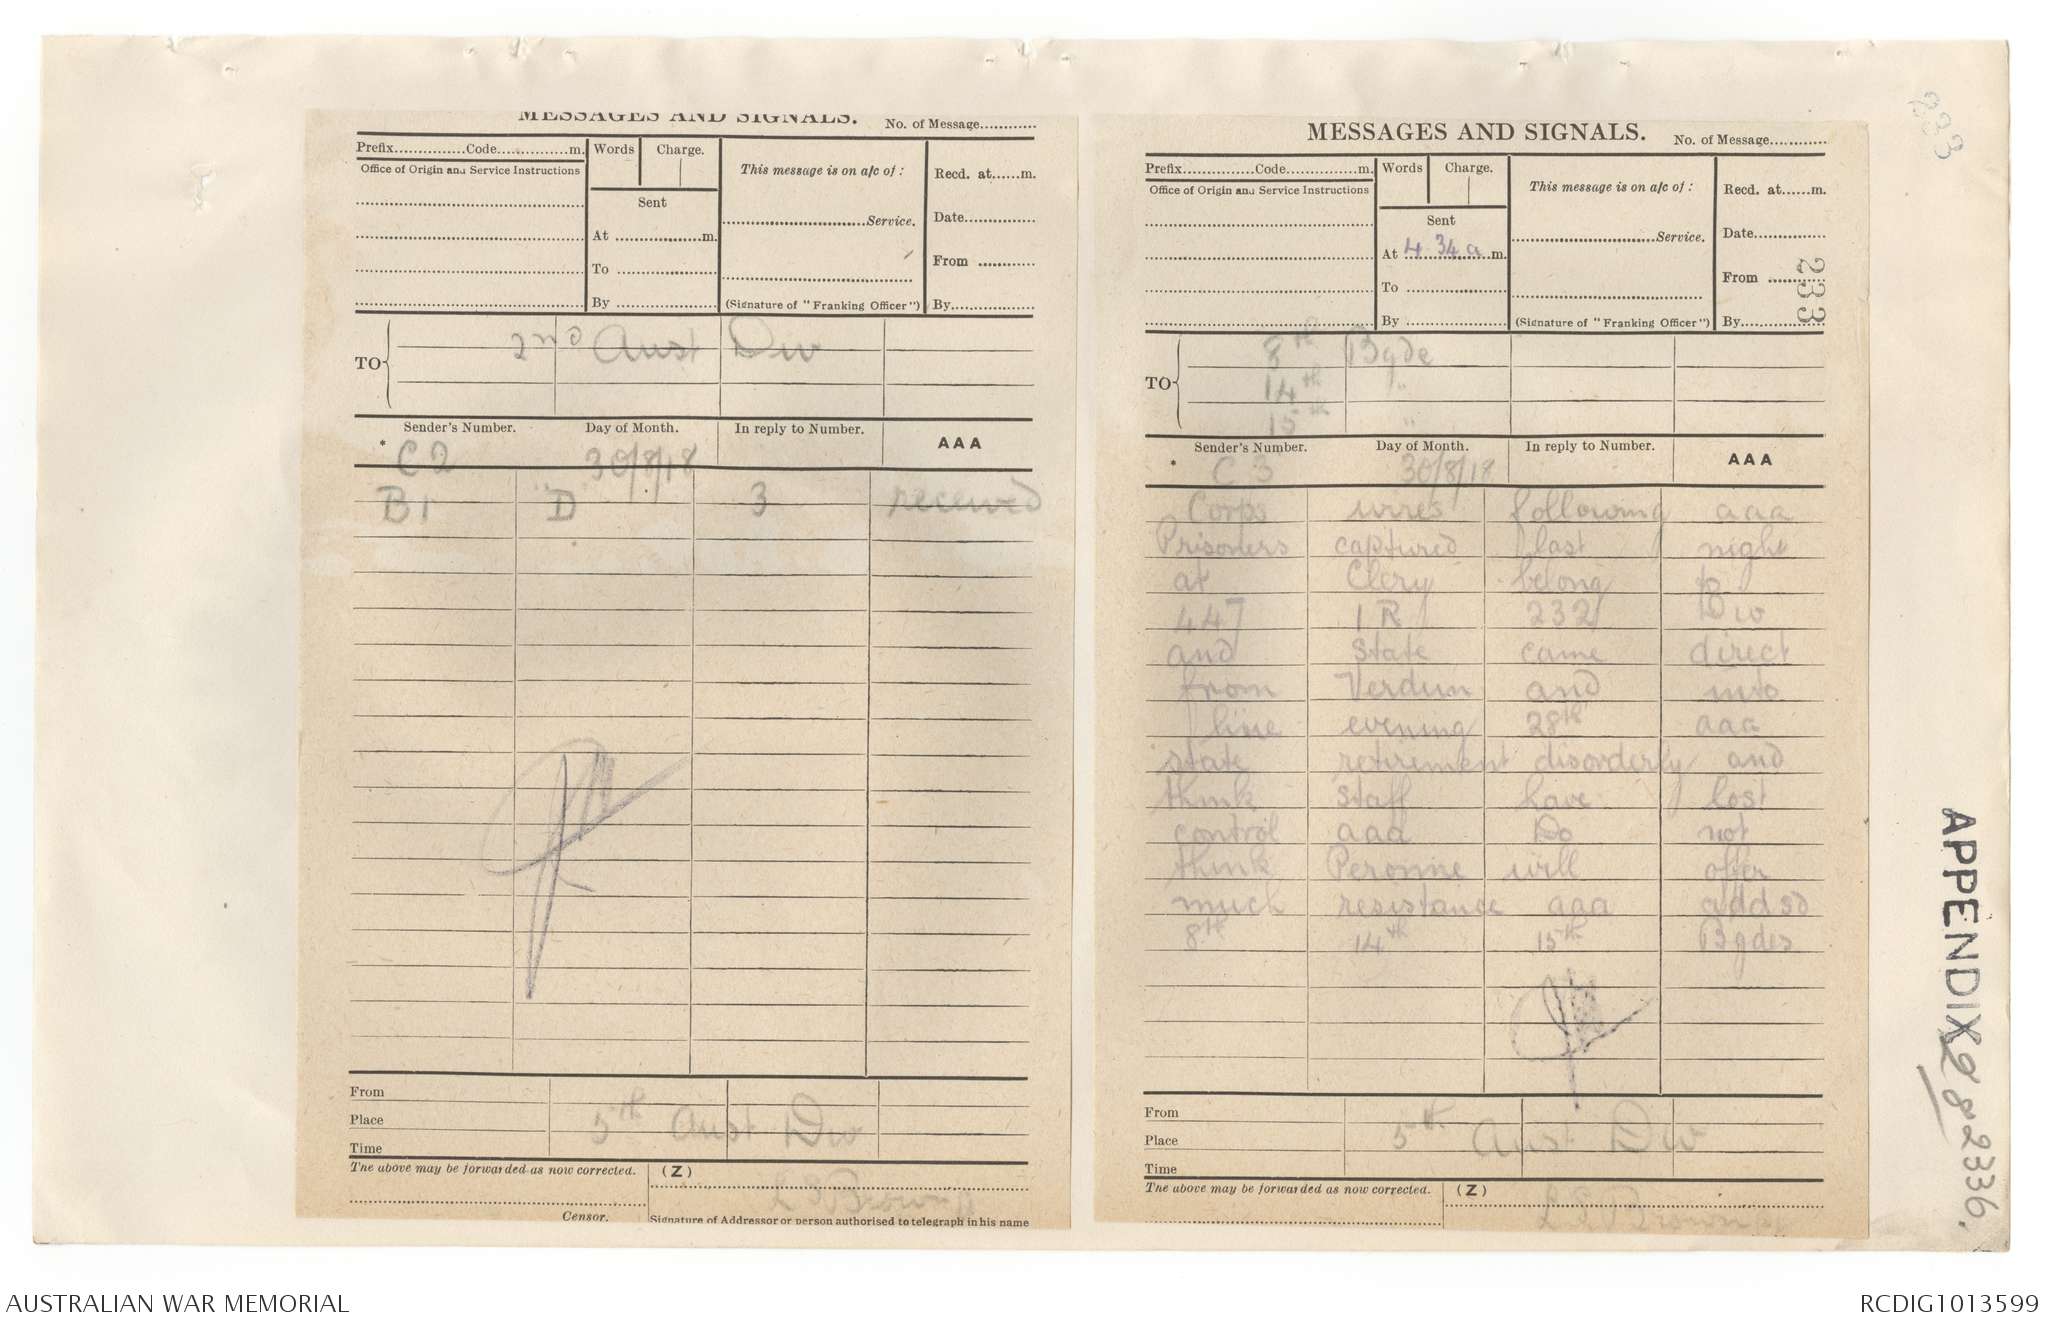 MESSAGES AND SIGNALS.
No. of Message............
Prefix..............Code..............m.
Words
Charge.
This message is on a/c of :
Recd. at......m.
Office of Origin and Service Instructions
Sent
................Service.
Date..............
At ...............m.
From ............
To ...............
By ...............
(Signature of "Franking Officer")
By..............
TO
2nd Aust Div
Sender's Number.
Day of Month.
In reply to Number.
AAA
* C 2
30/8/18
B1 "D" 3 received
From
Place
5th Aust Div
Time
The above may be forwarded as now corrected.
(Z)
Censor.
Signature of Addressor or person authorised to telegraph in his name
MESSAGES AND SIGNALS.
No. of Message............
Prefix..............Code..............m.
Words
Charge.
This message is on a/c of :
Recd. at......m.
Office of Origin and Service Instructions
Sent
................Service.
Date..............
At 4 34 a m.
From ............
To ...............
By ...............
(Signature of "Franking Officer")
By..............
233
TO
8th Bgde
14th "
15th "
Sender's Number.
Day of Month.
In reply to Number.
AAA
* C 3
30/8/18
Corps wires following aaa
Prisoners captured last night
at Clery belong to
447 IR 232 Div
and state came direct
from Verdun and into
line evening 28th aaa
state retirement disorderly and
think staff have lost
control aaa Do not
think Peronne will offer
much resistance aaa addsd
8th 14th 15th Bgdes
From
Place
5th Aust Div
Time
The above may be forwarded as now corrected.
(Z)
233
APPENDIX
2336.
AUSTRALIAN WAR MEMORIAL
RCDIG1013599